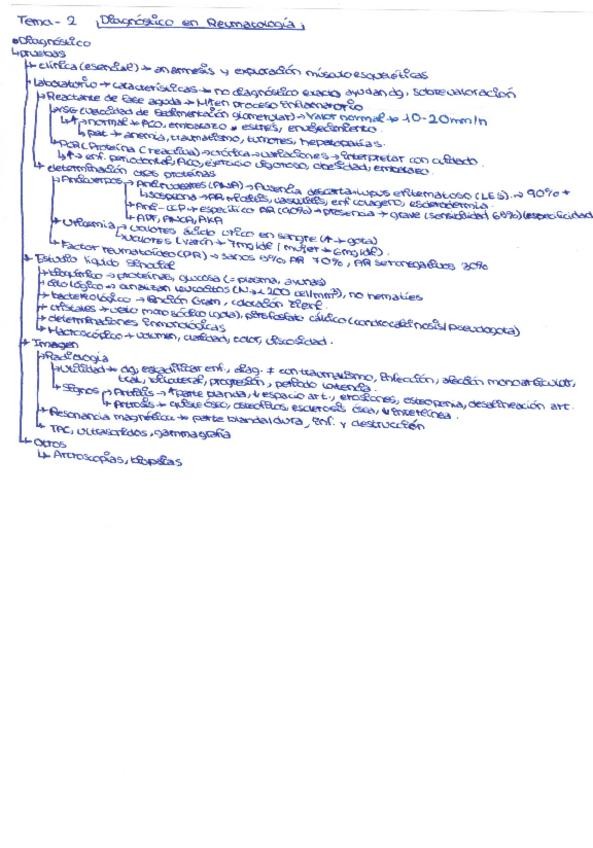 Tema - 2 Diagnóstico en Reumatología
Diagnóstico
↳ pruebas
→ clínica (esencial) → anamnesis y exploración músculoesqueléticas
→ laboratorio → características → no diagnóstico exacto, ayudan dg, sobrevaloración
→ Reactante de fase aguda → en proceso inflamatorio
→ VSG (velocidad de sedimentación glomerular) → valor normal → 10-20mm/h
↳ ↑ → normal → ACO, embarazo, estrés, envejecimiento.
↳ pat → anemia, traumatismo, tumores, hepatopatías.
→ PCR (Proteína C reactiva) → crónica → variaciones → interpretar con cuidado.
↳ ↑ → enf. periodontal, ACO, ejercicio vigoroso, obesidad, embarazo.
→ determinación otras proteínas
→ Anticuerpos → Antinucleares (ANA) → Ausencia descarta → lupus eritematoso (LES). → 90% +
↳ esclerodermia.
→ Anti-CCP → específico AR (90%) → presencia → grave (sensibilidad 68%) (especificidad
→ APF, ANCA, AKA
→ Uricemia → valores ácido úrico en sangre (↑ → gota)
↳ valores (varón → 7mg/dl / mujer → 6mg/dl).
→ Factor reumatoideo (FR) → sanos 5%, AR 70%, AR seronegativos 30%
→ Estudio líquido sinovial
→ bioquímico → proteínas, glucosa (= plasma, ayunas)
→ citológico → analizan leucocitos (N → < 200 cel/mm³), no hematíes
→ bacteriológico → tinción Gram, coloración Ziehl.
→ cristales → urato monosódico (gota), pirofosfato cálcico (condrocalcinosis/pseudogota)
→ determinaciones inmunológicas
→ Macroscópico → volumen, claridad, color, viscosidad.
→ Imagen
→ Radiología
→ Utilidad → dg, estadificar enf., diag. ≠ con traumatismo, infección, afección monoarticular,
local, bilateral, progresión, periodo latencia.
→ Signos → Artritis → ↑ parte blanda, ↓ espacio art., erosiones, osteopenia, desalineación art.
→ Artrosis → quiste óseo, osteofitos, esclerosis ósea, ↓ interlínea.
→ Resonancia magnética → parte blanda/dura, inf. y destrucción
→ TAC, ultrasonidos, gammagrafía
→ Otros
↳ Artroscopias, biopsias